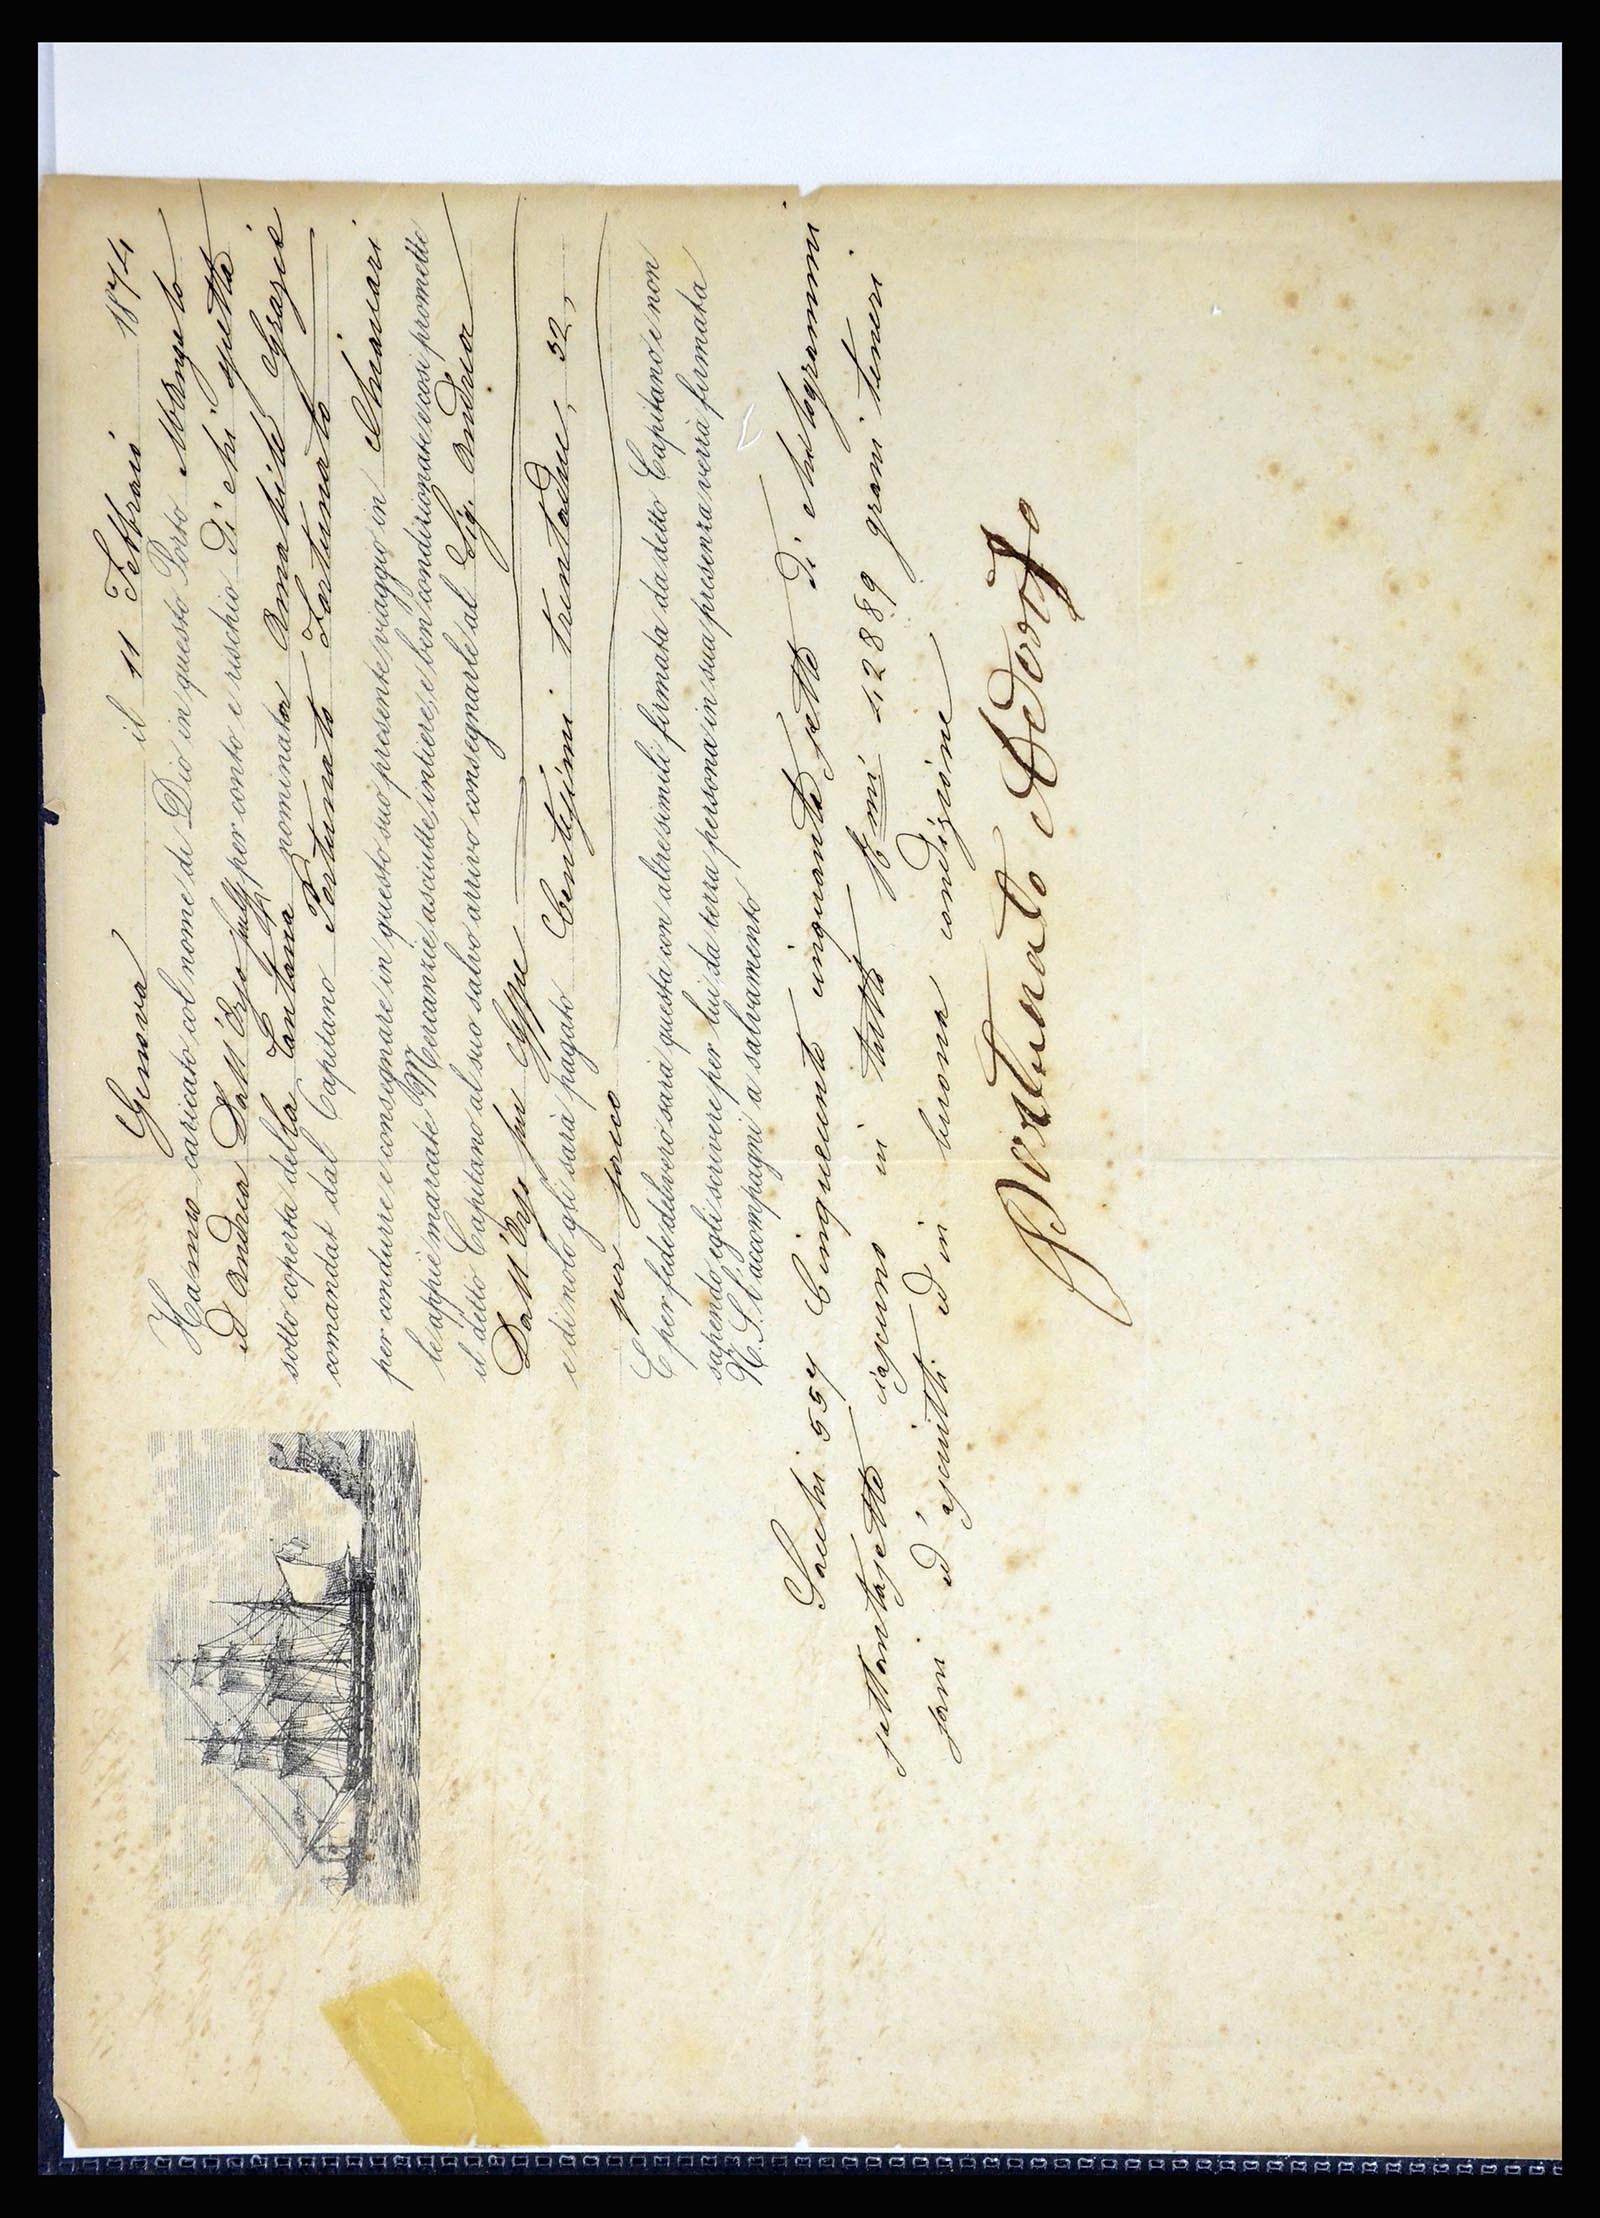 Genova il 11 Febbraio 1874
Hanno caricato col nome di Dio in questo Porto
ed Andrea Dall'Orso per conto e rischio di chi spetta
sotto coperta della nominata Amabile Grazie
comandat dal Capitano Fortunato
per condurre e consegnare in questo suo presente viaggio in Chiavari
le appiè marcate Mercanzie asciutte, intiere, e ben condizionate e così promette
il detto Capitano al suo salvo arrivo consegnarle al Sig. Andrea
Dall'Orso
e di nolo gli sarà pagato Centesimi trentadue, 32,
per sacco
E per fede del vero sarà questa con altre simili firmata da detto Capitano e non
sapendo egli scrivere per lui da terza persona in sua presenza verrà firmata
N. S. l'accompagni a salvamento
Sacchi 557 Cinquecento cinquanta sette di chilogrammi
settantasette ciascuno in tutto 42889 grani teneri
sani ed asciutti ed in buona condizione
Fortunato